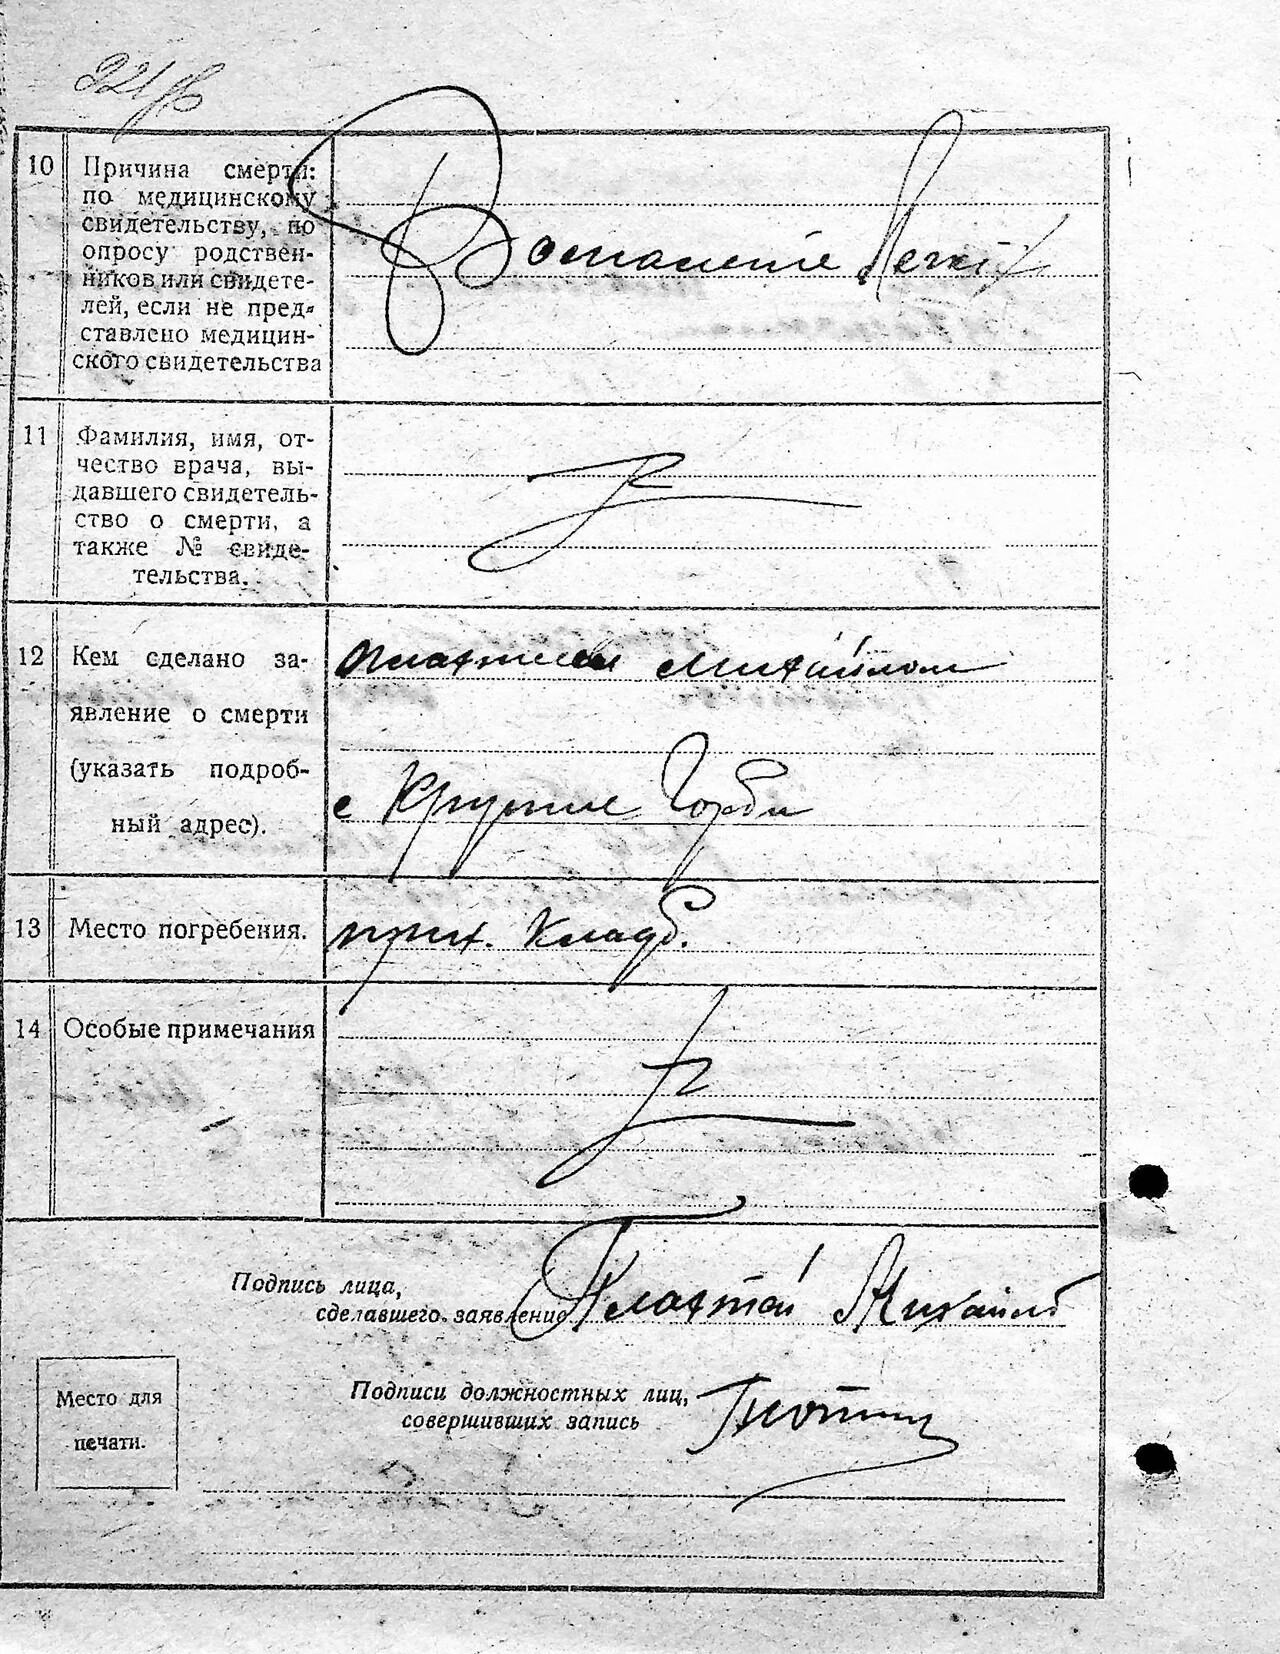 10 Причина смерти:
по медицинскому
свидетельству, по
опросу родствен-
ников или свидете-
лей, если не пред-
ставлено медицин-
ского свидетельства
Воспаление легких
11 Фамилия, имя, от-
чество врача, вы-
давшего свидетель-
ство о смерти, а
также № свиде-
тельства.
12 Кем сделано за-
явление о смерти
(указать подроб-
ный адрес).
Михайлом
с Крутые Горби
13 Место погребения.
прих. кладб.
14 Особые примечания
Подпись лица,
сделавшего заявление Плахтай Михайло
Подписи должностных лиц,
совершивших запись
Место для
печати.